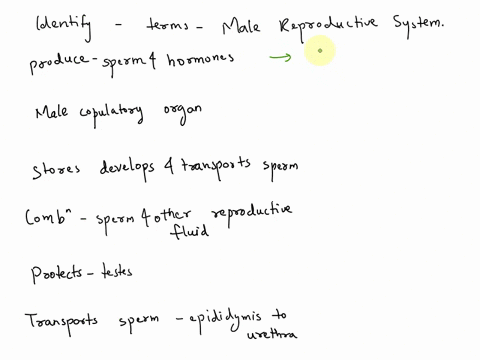 Identify - terms - Male Reproductive System.
produce - sperm & hormones →
Male copulatory organ
Stores develops & transports sperm
Combⁿ - sperm & other reproductive
fluid
Protects - testes
Transports sperm - epididymis to
urethra